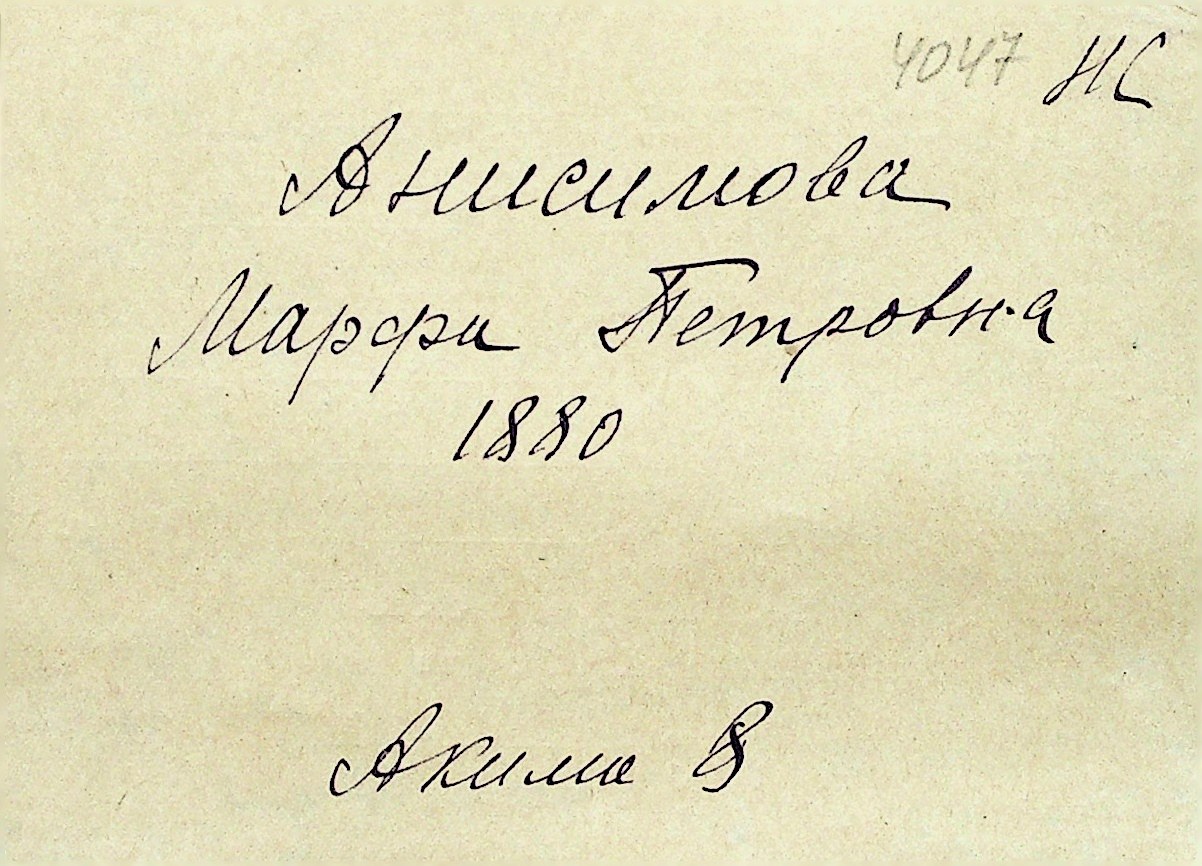 4047 НС
Анисимова
Марфа Петровна
1880
Акима 8